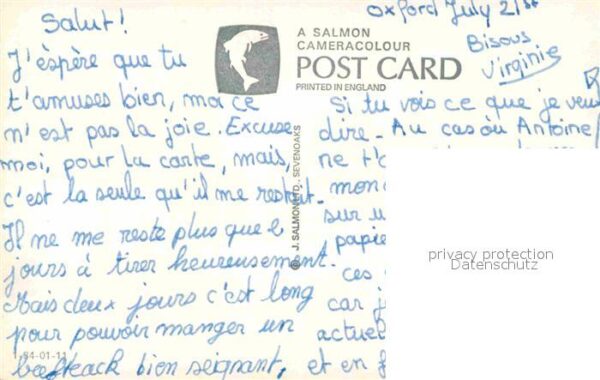 Salut!
J'éspère que tu
t'amuses bien, moi ce
n'est pas la joie. Excuse
moi, pour la carte, mais,
c'est la seule qu'il me restait.
Il ne me reste plus que
jours à tirer heureusement.
Mais deux jours c'est long
pour pouvoir manger un
beefteack bien seignant,
A SALMON
CAMERACOLOUR
POST CARD
PRINTED IN ENGLAND
© J. SALMON LTD. SEVENOAKS
1-84-01-11
Oxford July 21st
Bisous
Virginie
Si tu vois ce que je veux
dire. Au cas où Antoine
ne t'a
mon
sur u
papie
ces
car j
actuel
et en f
privacy protection
Datenschutz